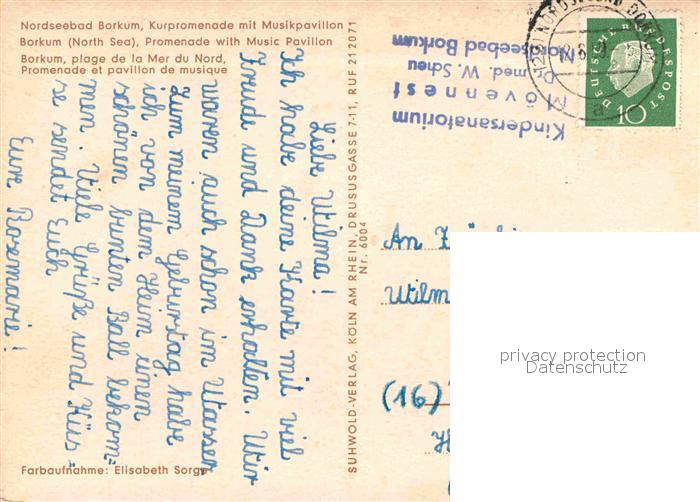 Nordseebad Borkum, Kurpromenade mit Musikpavillon
Borkum (North Sea), Promenade with Music Pavillon
Borkum, plage de la Mer du Nord,
Promenade et pavillon de musique
Liebe Wilma!
Ich habe deine Karte mit viel
Freude und Dank erhalten. Wir
waren auch schon im Wasser.
Zum meinem Geburtstag habe
ich von dem Heim einen
schönen bunten Ball bekom=
men. Viele Grüße und Küs=
se sendet Euch
Eure Rosemarie!
Farbaufnahme: Elisabeth Sorge
SUHWOLD-VERLAG, KÖLN AM RHEIN, DRUSUSGASSE 7-11, RUF 212071
Nr. 6004
Kindersanatorium
Mövennest
Dr. med. W. Scheu
Nordseebad Borkum
DEUTSCHE BUNDESPOST
10
a
An
Wilm
(16)
privacy protection
Datenschutz